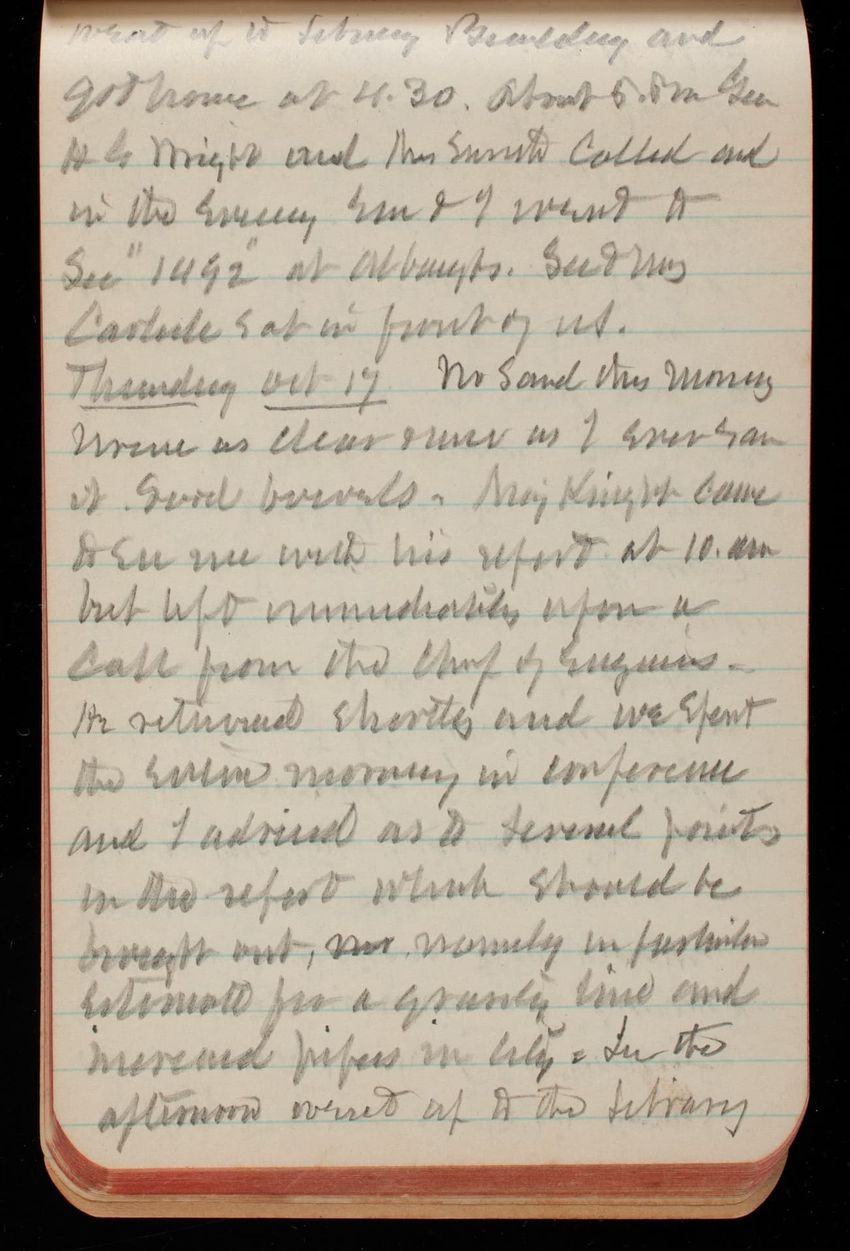 went up to Library Building and
got home at 4.30. About 5. Gen
H G Wright and Mrs Smith Called and
in the Evening Em & I went to
See "1492" at Albaughs. Sec & Mrs
Carlisle Sat in front of us.
Thursday Oct 17 No Sand this Morning
Urine as Clear as I ever saw
it. Good bowels - Maj Knight Came
to See me with his report at 10. am
but left immediately upon a
Call from the Chief of Engineers -
He returned Shortly and we Spent
the Entire morning in conference
and I advised as to Several points
in the report which Should be
brought out, namely in particular
Estimate for a gravity line and
increased pipes in City - In the
afternoon went up to the Library